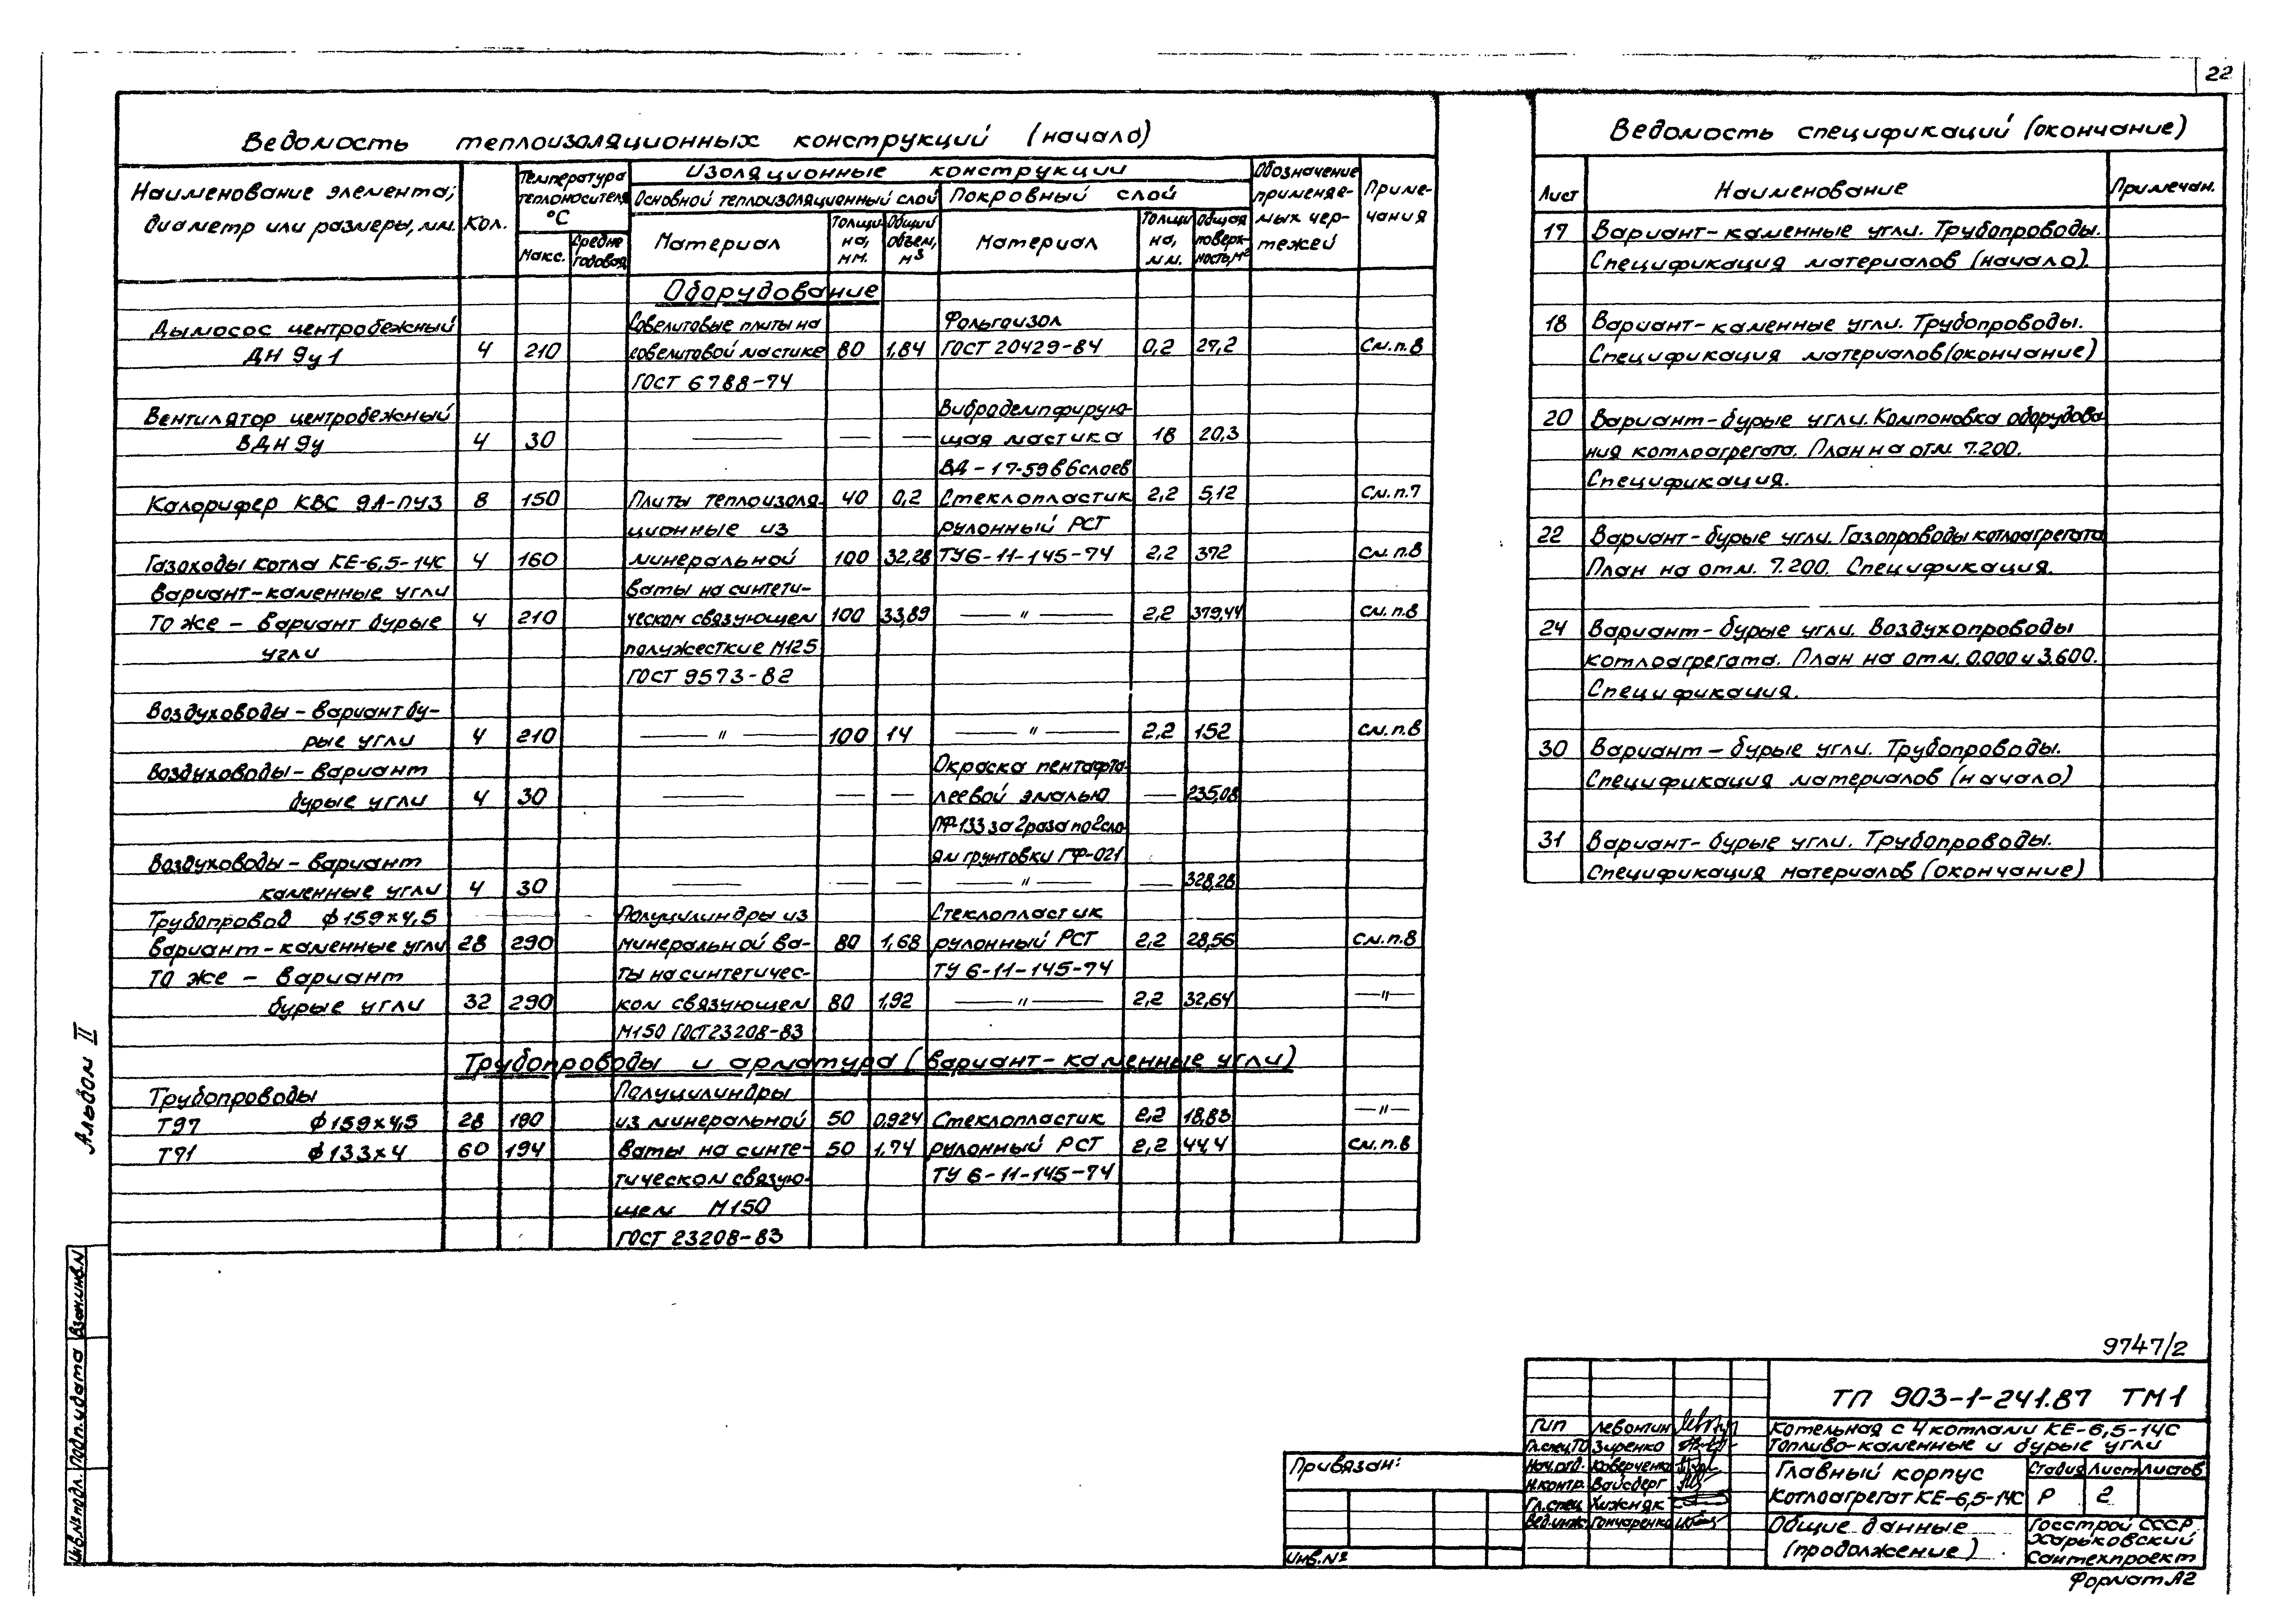 22
Ведомость теплоизоляционных конструкций (начало)
Наименование элемента; диаметр или размеры, мм.
Кол.
Температура теплоносителя °С
Макс.
Средне годовая
Изоляционные конструкции
Основной теплоизоляционный слой
Покровный слой
Материал
Толщина, мм.
Общий объем, м³
Материал
Толщина, мм.
Общая поверхность, м²
Обозначение применяемых чертежей
Примечания
Оборудование
Совелитовые плиты на Фольгоизол
Дымосос центробежный
ДН 9у1 4 210 совелитовой мастике 80 1,84 ГОСТ 20429-84 0,2 27,2 См.п.8
ГОСТ 6788-74
Вентилятор центробежный Вибродемпфирую-
ВДН 9у 4 30 — — — щая мастика 18 20,3
ВД-17-59 в 6 слоев
Калорифер КВС 9А-ПУЗ 8 150 Плиты теплоизоля- 40 0,2 Стеклопластик 2,2 5,12 См.п.7
ционные из рулонный РСТ
Газоходы котла КЕ-6,5-14С 4 160 минеральной 100 32,28 ТУ6-11-145-74 2,2 372 См.п.8
Вариант-каменные угли ваты на синтети-
То же - вариант бурые 4 210 ческом связующем 100 33,89 — " — 2,2 379,44 См.п.8
угли полужесткие М125
ГОСТ 9573-82
Воздуховоды - вариант бу-
рые угли 4 210 — " — 100 14 — " — 2,2 152 См.п.8
Воздуховоды - вариант Окраска пентафта-
бурые угли 4 30 — — — леевой эмалью — 235,08
ПФ-133 за 2 раза по 2 сло-
Воздуховоды - вариант ям грунтовки ГФ-021
каменные угли 4 30 — — — — " — — 328,28
Трубопровод ф159×4,5 Полуцилиндры из Стеклопластик
вариант-каменные угли 28 290 минеральной ва- 80 1,68 рулонный РСТ 2,2 28,56 См.п.8
То же - вариант ты на синтетичес- ТУ 6-11-145-74
бурые угли 32 290 ком связующем 80 1,92 — " — 2,2 32,64 — " —
М150 ГОСТ 23208-83
Трубопроводы и арматура (вариант-каменные угли)
Трубопроводы Полуцилиндры
Т97 ф159×4,5 28 190 из минеральной 50 0,924 Стеклопластик 2,2 18,83 — " —
Т71 ф133×4 60 194 ваты на синте- 50 1,74 рулонный РСТ 2,2 44,4 См.п.8
тическом связую- ТУ 6-11-145-74
щем М150
ГОСТ 23208-83
Ведомость спецификаций (окончание)
Лист Наименование Примечан.
17 Вариант-каменные угли. Трубопроводы.
Спецификация материалов (начало).
18 Вариант-каменные угли. Трубопроводы.
Спецификация материалов (окончание)
20 Вариант-бурые угли. Компоновка оборудова-
ния котлоагрегата. План на отм. 7.200.
Спецификация.
22 Вариант-бурые угли. Газопроводы котлоагрегата
План на отм. 7.200. Спецификация.
24 Вариант-бурые угли. Воздухопроводы
котлоагрегата. План на отм. 0.000 и 3.600.
Спецификация.
30 Вариант-бурые угли. Трубопроводы.
Спецификация материалов (начало)
31 Вариант-бурые угли. Трубопроводы.
Спецификация материалов (окончание)
Альбом II
Инв.№ подл. Подп. и дата Взам.инв.N
9747/2
ТП 903-1-241.87 ТМ1
ГИП Левонтин
Гл.спец.ТО Зиренко
Нач.отд. Коверченко
Н.контр. Вайсберг
Гл.спец. Хижняк
Вед.инж. Гончаренко
Котельная с 4 котлами КЕ-6,5-14С
Топливо-каменные и бурые угли
Главный корпус
Котлоагрегат КЕ-6,5-14С
Стадия Лист Листов
Р 2
Общие данные
(продолжение)
Госстрой СССР
Харьковский
Сантехпроект
Формат А2
Привязан:
Инв.№